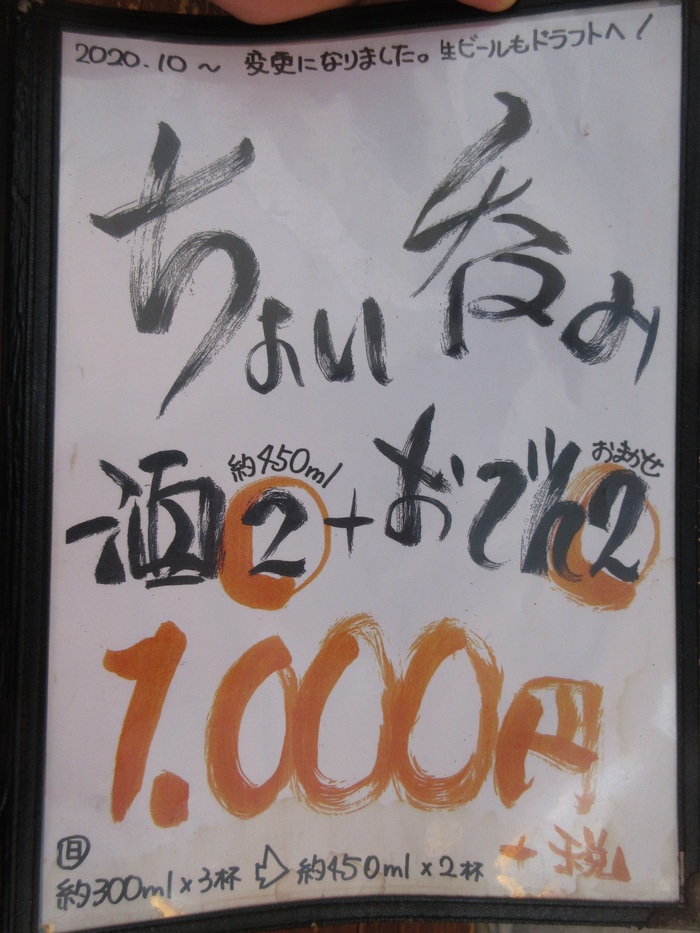 2020.10～ 変更になりました。生ビールもドラフトへ！
ちょい呑み
約450ml おまかせ
酒2+おでん2
1.000円
+税
旧
約300ml×3杯⇨約450ml×2杯